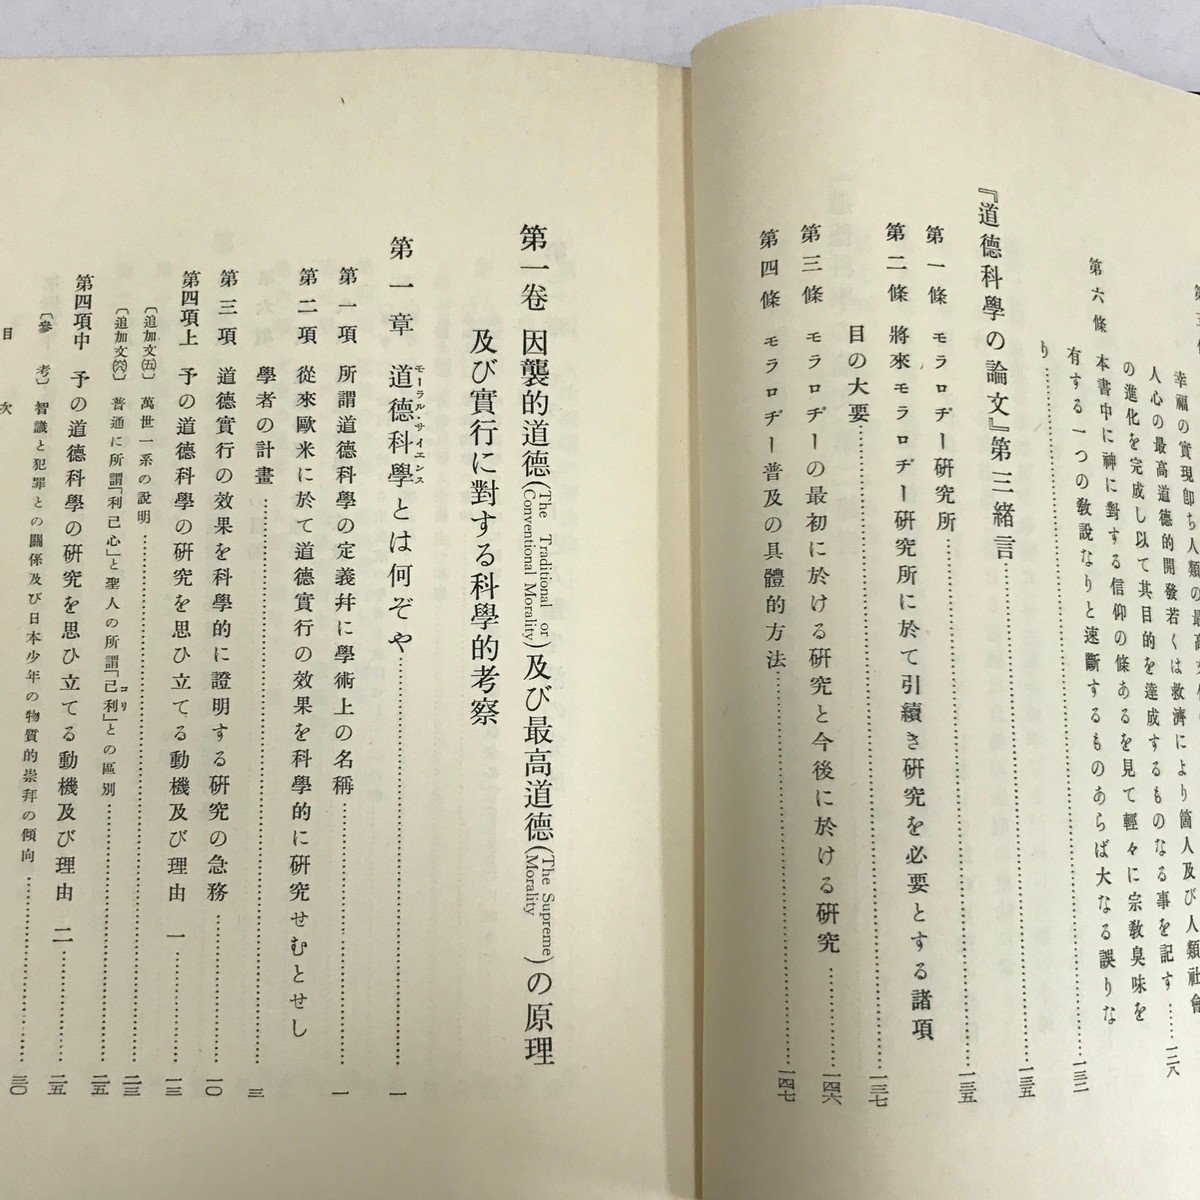 幸福の實現卽ち人類の最高
人心の最高道德的開發若くは救濟により箇人及び人類社會
の進化を完成し以て其目的を達成するものなる事を記す……一二八
第六條 本書中に神に對する信仰の條あるを見て輕々に宗敎臭味を
有する一つの敎說なりと速斷するものあらば大なる誤りな
り……一三二
『道德科學の論文』第三緖言……一三五
第一條 モラロヂー硏究所……一三五
第二條 將來モラロヂー硏究所に於て引續き硏究を必要とする諸項
目の大要……一三七
第三條 モラロヂーの最初に於ける硏究と今後に於ける硏究……一四六
第四條 モラロヂー普及の具體的方法……一四七
第一卷 因襲的道德(The Traditional or Conventional Morality)及び最高道德(The Supreme Morality)の原理
及び實行に對する科學的考察
第一章 道德科學とは何ぞや……一
モーラル・サイエンス
第一項 所謂道德科學の定義幷に學術上の名稱……一
第二項 從來歐米に於て道德實行の效果を科學的に硏究せむとせし
學者の計畫……三
第三項 道德實行の效果を科學的に證明する硏究の急務……一〇
第四項上 予の道德科學の硏究を思ひ立てる動機及び理由 一……一三
〔追加文(五)〕 萬世一系の說明……二三
〔追加文(六)〕 普通に所謂「利己心」と聖人の所謂「己利」との區別……二五
コリ
第四項中 予の道德科學の硏究を思ひ立てる動機及び理由 二……二五
〔參考〕 智識と犯罪との關係及び日本少年の物質的崇拜の傾向……三〇
目次